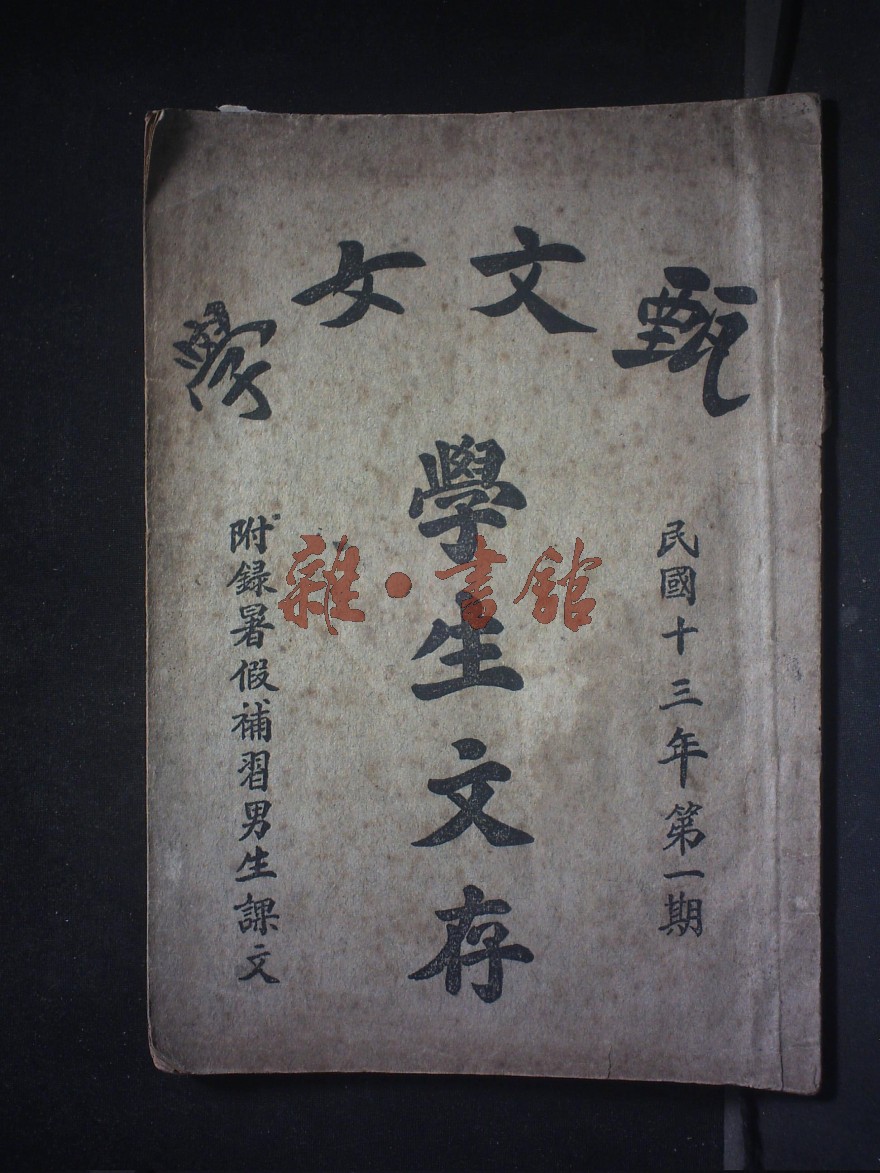 甄文女學
民國十三年第一期
學生文存
附錄暑假補習男生課文
雜·書館